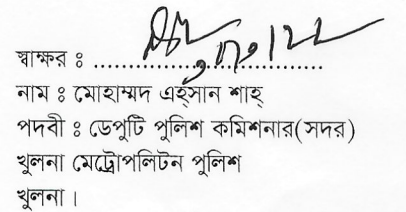 স্বাক্ষর ঃ ........................................
নাম ঃ মোহাম্মদ এহ্সান শাহ্
পদবী ঃ ডেপুটি পুলিশ কমিশনার(সদর)
খুলনা মেট্রোপলিটন পুলিশ
খুলনা।